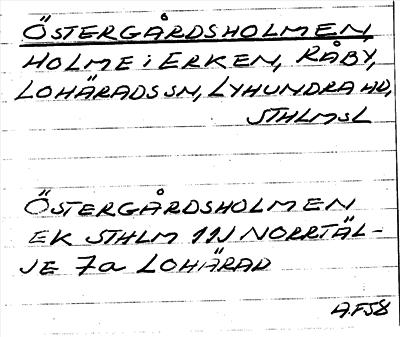 ÖSTERGÅRDSHOLMEN,
HOLME i ERKEN, RÅBY,
LOHÄRADS SN, LYHUNDRA HD,
STHLMS L
ÖSTERGÅRDSHOLMEN
EK STHLM 11J NORRTÄL-
JE 7a LOHÄRAD
AF58